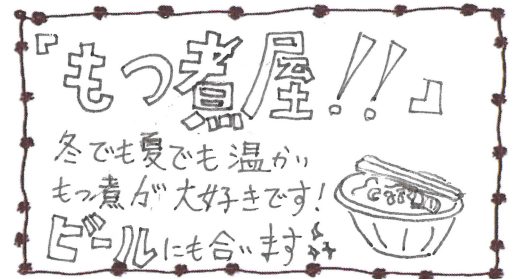 『もつ煮屋!!』
冬でも夏でも温かい
もつ煮が大好きです!
ビールにも合います